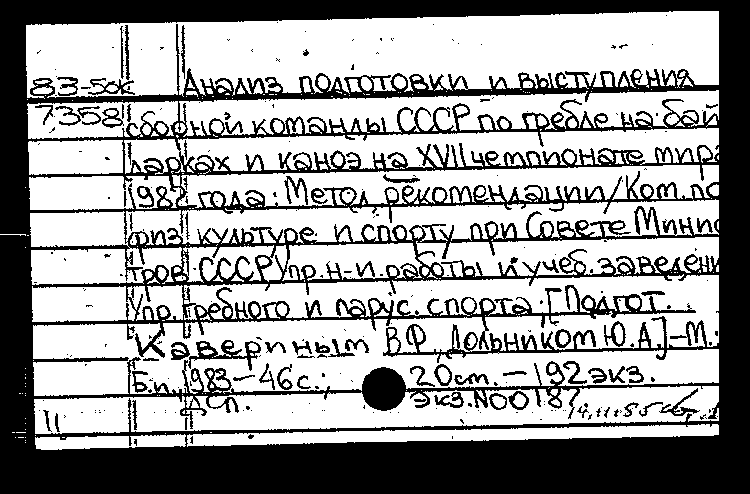 83-50к Анализ подготовки и выступления
7358 сборной команды СССР по гребле на бай
дарках и каноэ на XVII чемпионате мира
1982 года: Метод. рекомендации/Ком. по
физ культуре и спорту при Совете Минис
тров СССР, Упр. н-и. работы и учеб. заведени
Упр. гребного и парус. спорта; [Подгот.
Кавериным В.Ф., Дольником Ю.А.].-М.:
Б.и., 1983-46 с.; 20см. - 192 экз.
ДСП. Экз. N00187
11 14.11.85